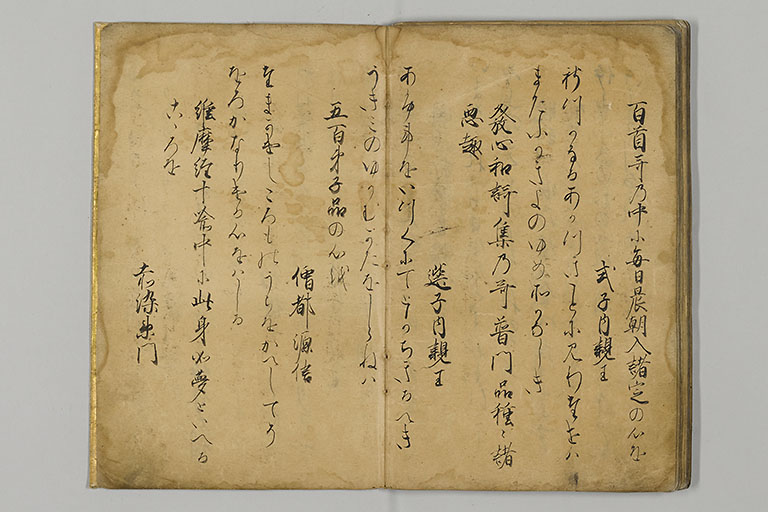 百首哥乃中に毎日晨朝入諸定の心を
式子内親王
しつかなるあか月ことに見わたせは
またふかきよのゆめそかなしき
發心和謌集乃哥 普門品種〻諸
悪趣
選子内親王
あふ事をいつくにてとかちきるへき
うきみのゆかむかたをしらねは
五百弟子品の心を
僧都源信
たまかけしころものうらをかへしてそ
をろかなりける心をはしる
維摩經十喩中に此身如夢といへる
こゝろを
赤染衛門